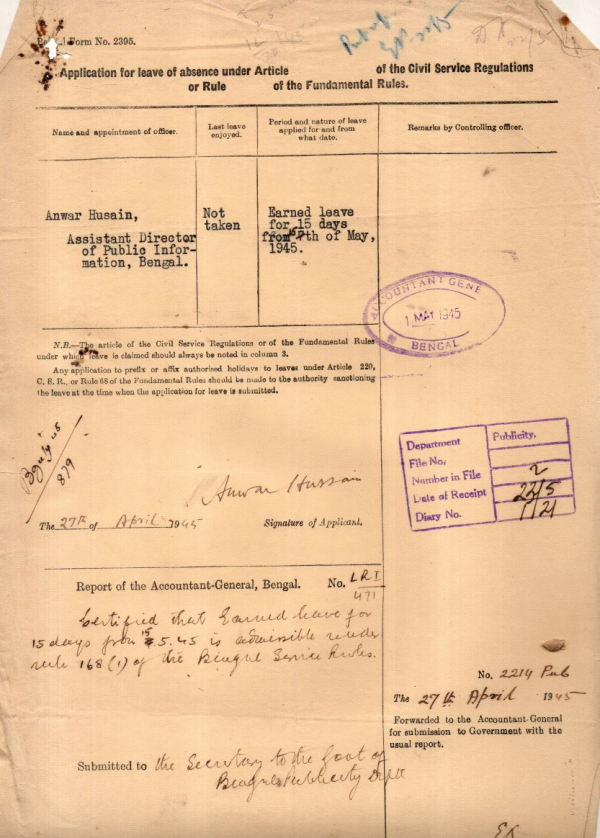 Form No. 2395.
Application for leave of absence under Article of the Civil Service Regulations
or Rule of the Fundamental Rules.
Name and appointment of officer.
Last leave enjoyed.
Period and nature of leave
applied for and from
what date.
Remarks by Controlling officer.
Anwar Husain,
Assistant Director
of Public Infor-
mation, Bengal.
Not
taken
Earned leave
for 15 days
from 15 7th of May,
1945.
ACCOUNTANT GENE
1 MAY 1945
BENGAL
N.B.—The article of the Civil Service Regulations or of the Fundamental Rules
under which leave is claimed should always be noted in column 3.
Any application to prefix or affix authorised holidays to leaves under Article 220,
C. S. R., or Rule 68 of the Fundamental Rules should be made to the authority sanctioning
the leave at the time when the application for leave is submitted.
879
Anwar Hussain
The 27th of April 1945
Signature of Applicant.
Department Publicity.
File No.
Number in File 2
Date of Receipt 22/5
Diary No. 1121
Report of the Accountant-General, Bengal. No. LRI
471
Certified that Earned leave for
15 days from 15 .5.45 is admissible under
rule 168(1) of the Bengal Service Rules.
Submitted to the Secretary to the Govt of
Bengal Publicity Deptt
No. 2214 Pub
The 27th April 1945
Forwarded to the Accountant-General
for submission to Government with the
usual report.